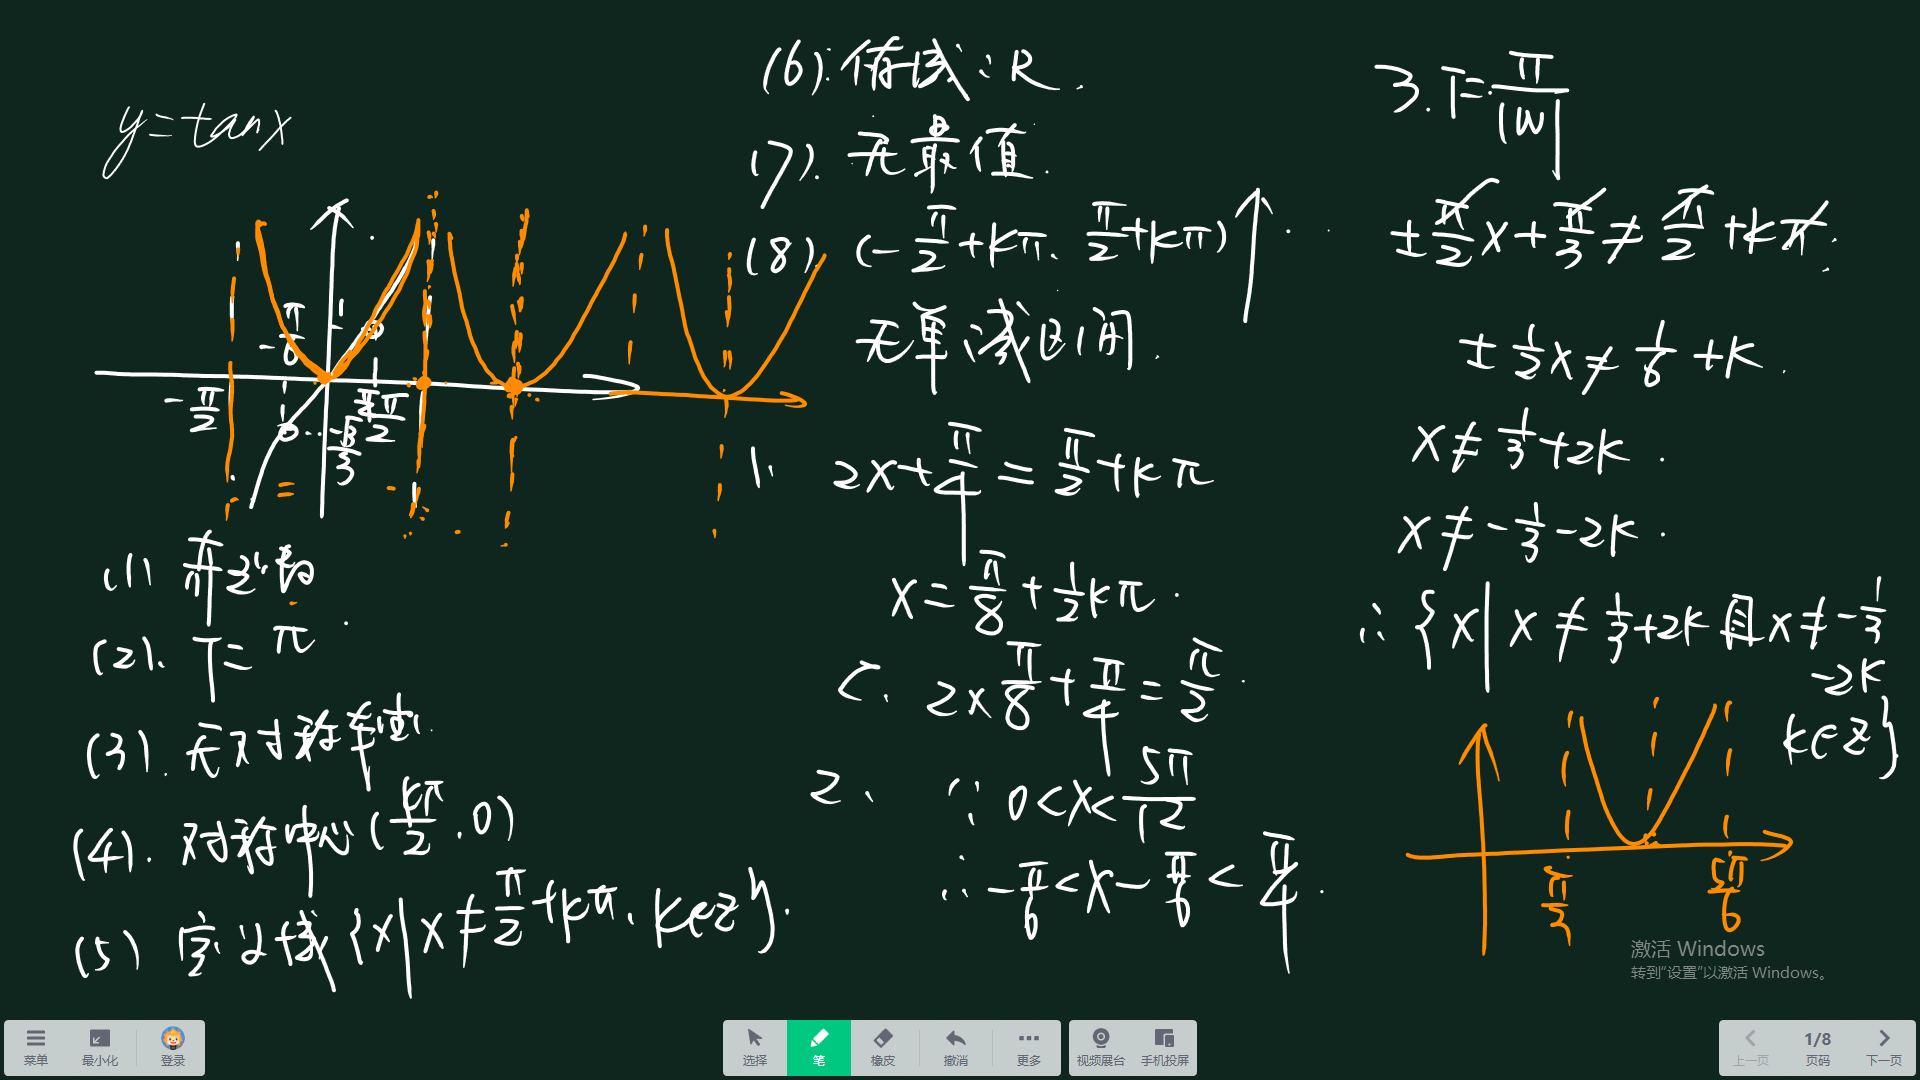 y=tanx
-π/6
-π/2
π/2
-√3/3
(1) 奇函数
(2). T=π
(3). 无对称轴
(4). 对称中心(kπ/2,0)
(5) 定义域{x|x≠π/2+kπ,k∈Z}.
(6). 值域:R.
(7). 无最值.
(8) (-π/2+kπ, π/2+kπ)↑
无单减区间.
1、 2x+π/4=π/2+kπ
x=π/8+1/2kπ.
C. 2×π/8+π/4=π/2.
2、 ∵0<x<5π/12
∴-π/6<x-π/6<π/4.
3. T=π/|w|
±π/2x+π/3≠π/2+kπ.
±1/2x≠1/6+k.
x≠1/3+2k.
x≠-1/3-2k.
∴{x|x≠1/3+2k且x≠-1/3
-2k
k∈Z}
5π/6
激活 Windows
转到“设置”以激活 Windows。
菜单 最小化 登录 选择 笔 橡皮 撤消 更多 视频展台 手机投屏 上一页 1/8 页码 下一页